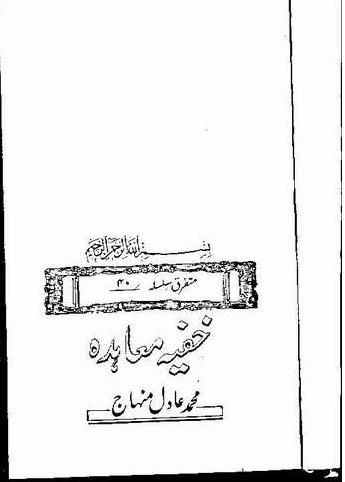 بسم الله الرحمن الرحیم
متفرق سلسلہ /۴۰
خفیہ معاہدہ
محمد عادل منہاج